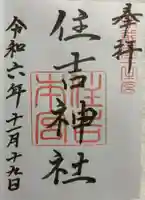 奉拝
住吉神社
令和六年十一月十九日